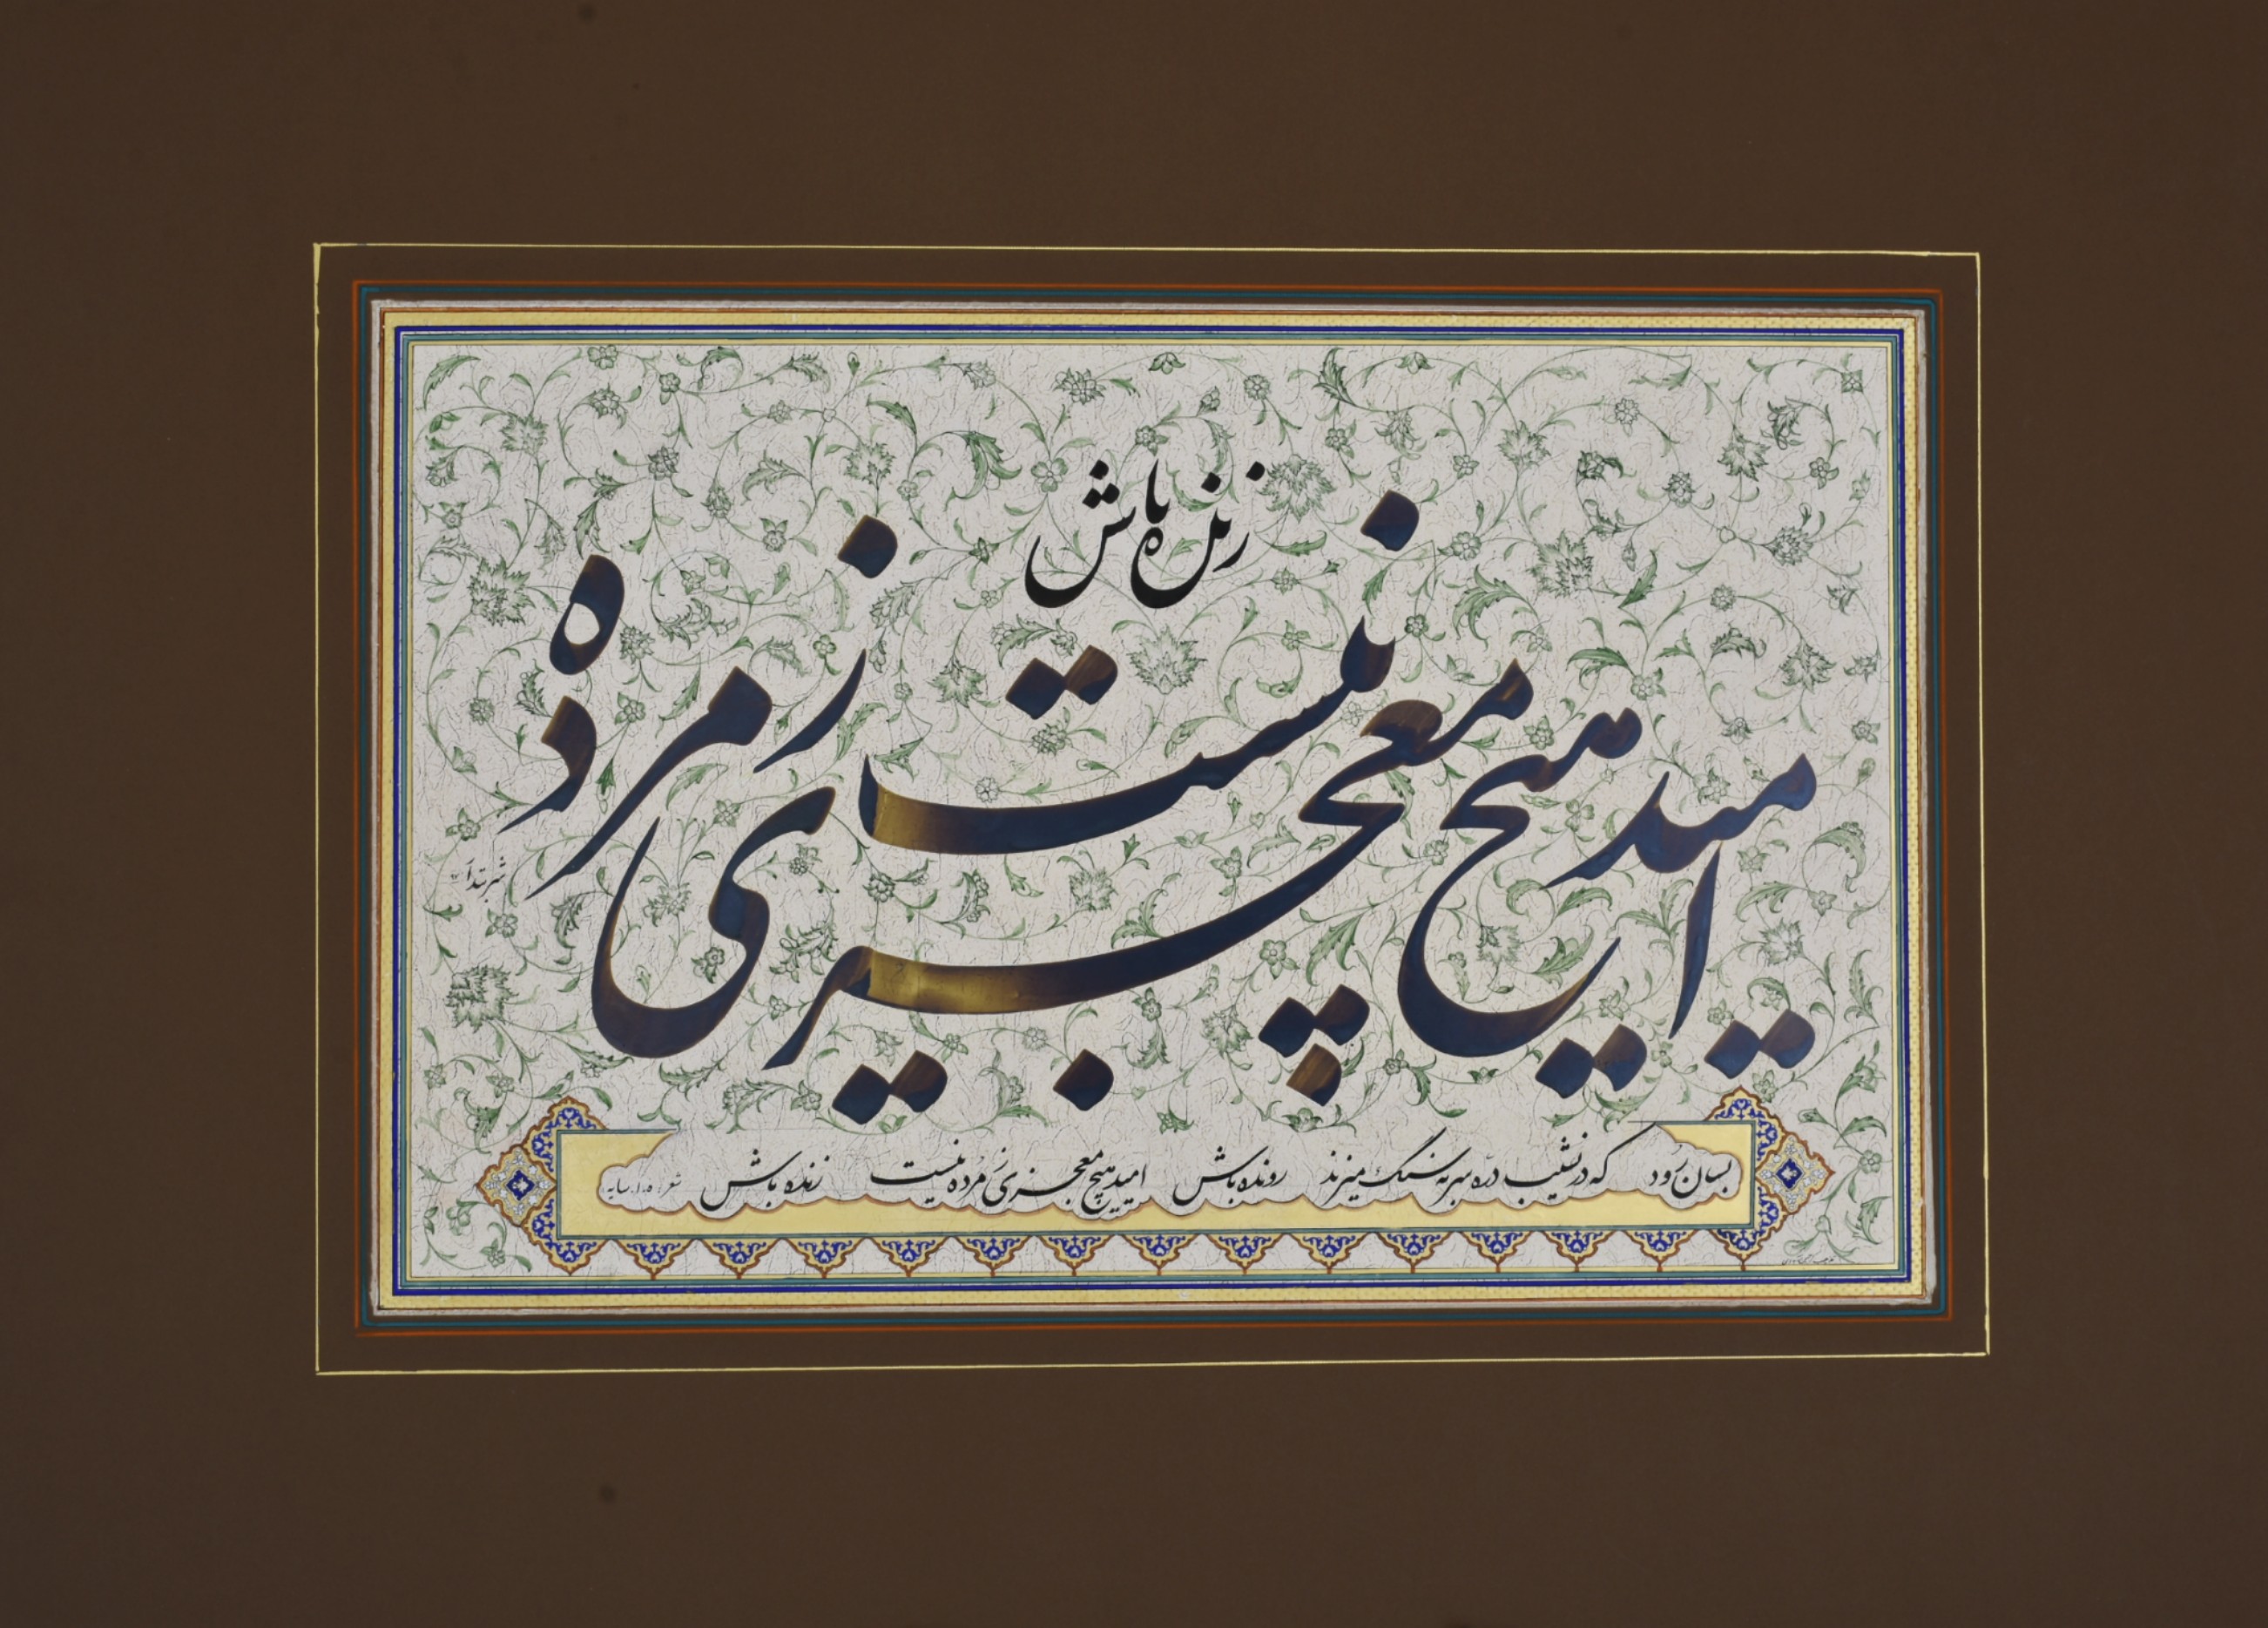 امید هیچ معجزی ز مرده نیست
زنده باش
بسان رود که در نشیب دره سر به سنگ میزند رونده باش امید هیچ معجزی ز مرده نیست زنده باش شعر: ه.ا.سایه